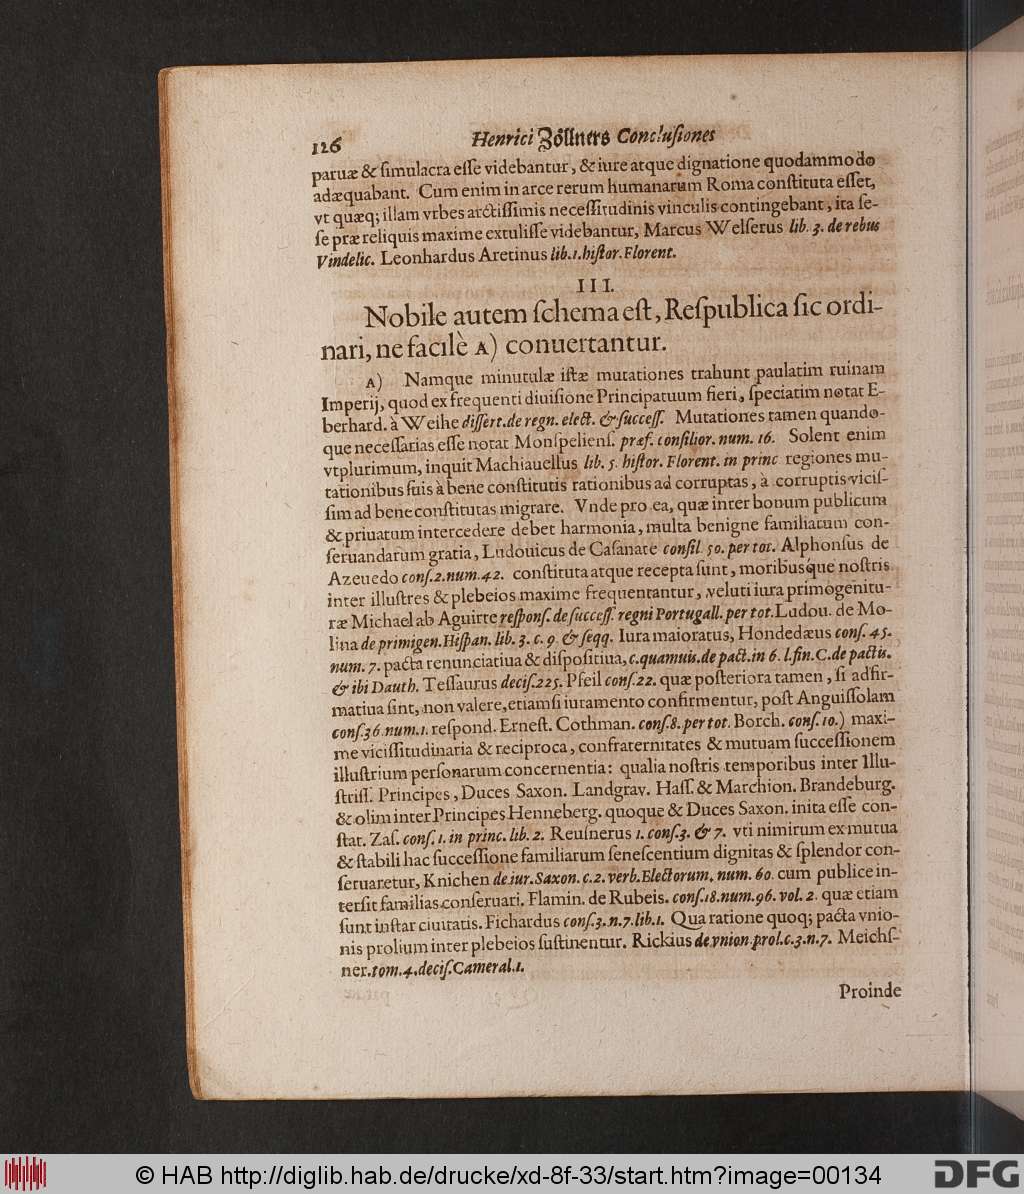 126 Henrici Zöllners Conclusiones
paruæ & ſimulacra eſſe videbantur, & iure atque dignatione quodammodo
adæquabant. Cum enim in arce rerum humanarum Roma conſtituta eſſet,
vt quæq; illam vrbes arctiſſimis neceſſitudinis vinculis contingebant, ita ſe-
ſe præ reliquis maxime extuliſſe videbantur, Marcus VVelſerus lib. 3. de rebus
Vindelic. Leonhardus Aretinus lib. 1. hiſtor. Florent.
III.
Nobile autem ſchema eſt, Reſpublica ſic ordi-
nari, ne facilè A) conuertantur.
A) Namque minutulæ iſtæ mutationes trahunt paulatim ruinam
Imperij, quod ex frequenti diuiſione Principatuum fieri, ſpeciatim notat E-
berhard. à VVeihe diſſert. de regn. elect. & ſucceſſ. Mutationes tamen quando-
que neceſſarias eſſe notat Monſpelienſ. præf. conſilior. num. 16. Solent enim
vtplurimum, inquit Machiauellus lib. 5. hiſtor. Florent. in princ regiones mu-
tationibus ſuis à bene conſtitutis rationibus ad corruptas, à corruptis viciſ-
ſim ad bene conſtitutas migrare. Vnde pro ea, quæ inter bonum publicum
& priuatum intercedere debet harmonia, multa benigne familiarum con-
ſeruandarum gratia, Ludouicus de Caſanate conſil. 50. per tot. Alphonſus de
Azeuedo conſ. 2. num. 42. conſtituta atque recepta ſunt, moribusque noſtris
inter illuſtres & plebeios maxime frequentantur, veluti iura primogenitu-
ræ Michael ab Aguirre reſponſ. de ſucceſſ. regni Portugall. per tot. Ludou. de Mo-
lina de primigen. Hiſpan. lib. 3. c. 9. & ſeqq. Iura maioratus, Hondedæus conſ. 45.
num. 7. pacta renunciatiua & diſpoſitiua, c. quamuis. de pact. in 6. l. fin. C. de pactis.
& ibi Dauth. Teſſaurus deciſ. 225. Pfeil conſ. 22. quæ poſteriora tamen, ſi adfir-
matiua ſint, non valere, etiamſi iuramento confirmentur, poſt Anguiſſolam
conſ. 36. num. 1. reſpond. Erneſt. Cothman. conſ. 8. per tot. Borch. conſ. 10.) maxi-
me viciſſitudinaria & reciproca, confraternitates & mutuam ſucceſſionem
illuſtrium perſonarum concernentia: qualia noſtris temporibus inter Illu-
ſtriſſ. Principes, Duces Saxon. Landgrav. Haſſ. & Marchion. Brandeburg.
& olim inter Principes Henneberg. quoque & Duces Saxon. inita eſſe con-
ſtat. Zaſ. conſ. 1. in princ. lib. 2. Reuſnerus 1. conſ. 3. & 7. vti nimirum ex mutua
& ſtabili hac ſucceſſione familiarum ſeneſcentium dignitas & ſplendor con-
ſeruaretur, Knichen de iur. Saxon. c. 2. verb. Electorum. num. 60. cum publice in-
terſit familias conſeruari. Flamin. de Rubeis. conſ. 18. num. 96. vol. 2. quæ etiam
ſunt inſtar ciuitatis. Fichardus conſ. 3. n. 7. lib. 1. Qua ratione quoq; pacta vnio-
nis prolium inter plebeios ſuſtinentur. Rickius de vnion prol. c. 3. n. 7. Meichſ-
ner. tom. 4. deciſ. Cameral. 1.
Proinde
© HAB http://diglib.hab.de/drucke/xd-8f-33/start.htm?image=00134
DFG